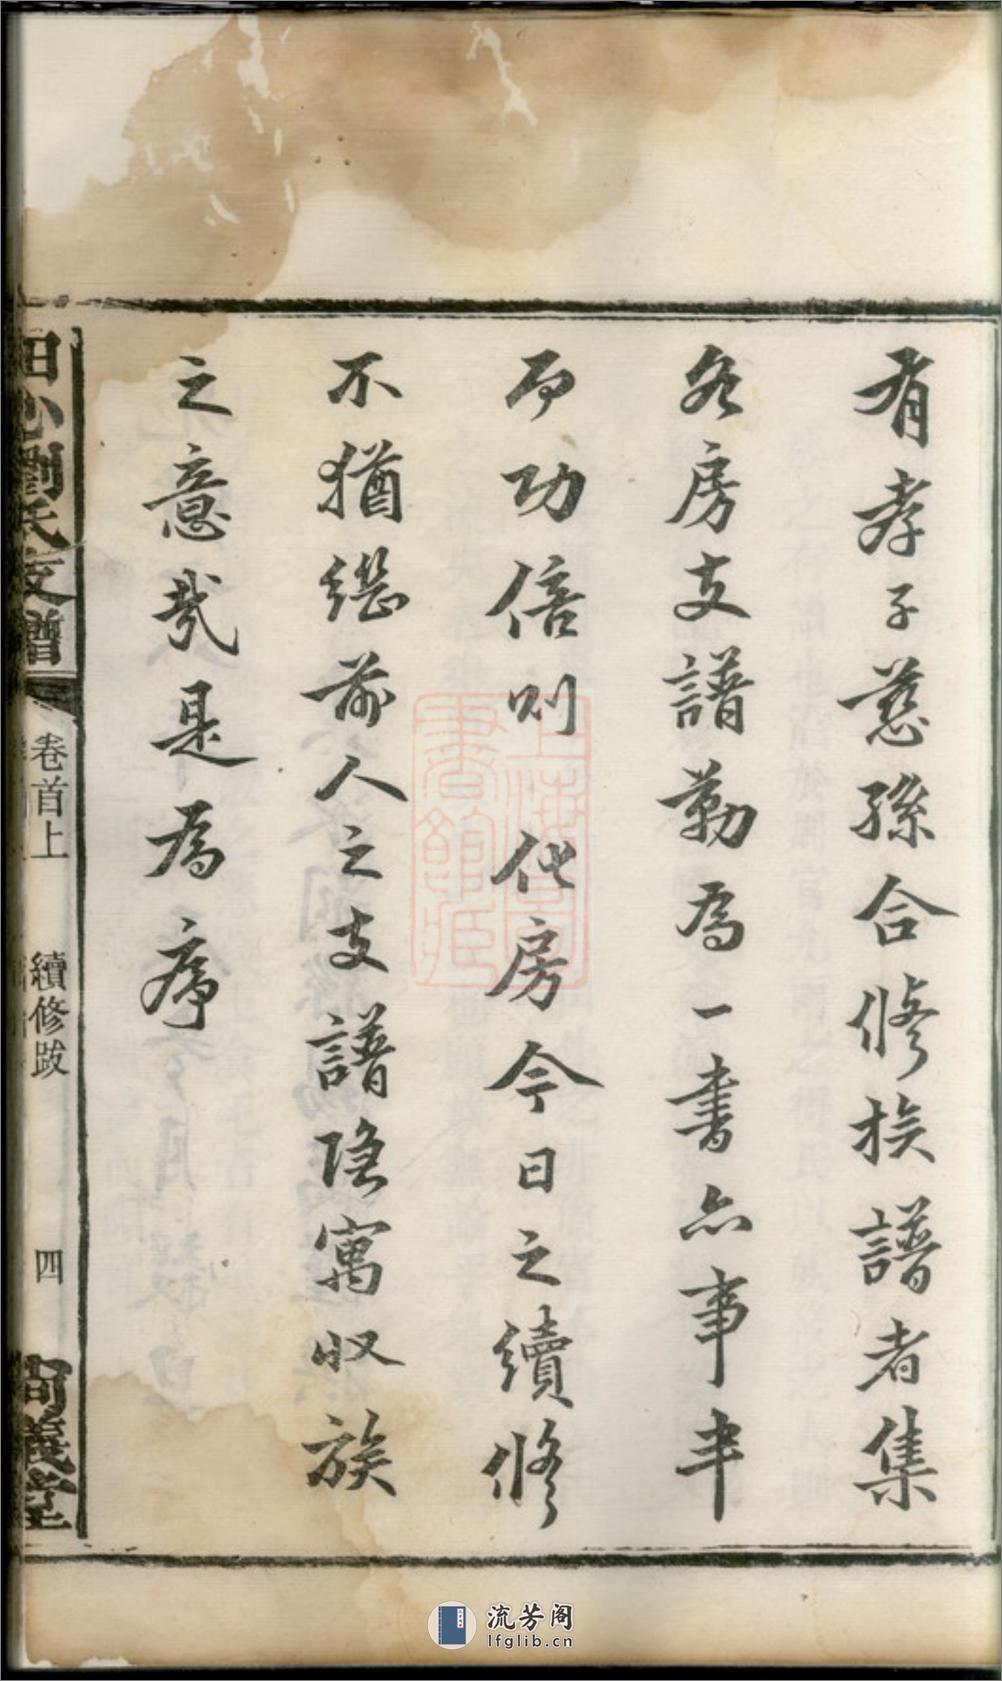 有孝子慈孫合修族譜者集
各房支譜勒為一書亦事半
而功倍則化房今日之續修
不猶繼前人之支譜隐寓收族
之意哉是為序
田心劉氏支譜
卷首上
續修跋
四
尚義堂
上海圖書館藏
流芳阁
lfglib.cn